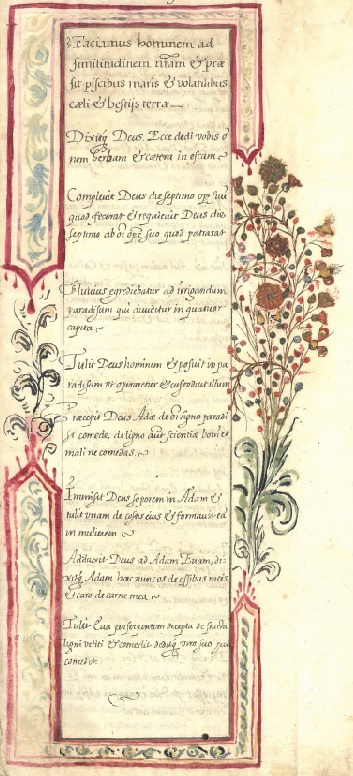 Faciamus hominem ad
similitudinem nram & præ
sit piscibus maris & volatilibus
cæli & bestijs terra
Dixitq Deus. Ecce dedi vobis o
nem herbam & cetera in escam
Complevit Deus die septimo
quod fecerat & requievit Deus die
septimo ab suo quod patrarat
fluvius egrediebatur ad irrigandum
paradisum qui dividitur in quatuor
capita
Tulit Deus hominem & posuit in pa
radisum ut operaretur & custodiret illum
Præcepit Deus Adæ de ligno paradi
si comede, de ligno aut scientiæ boni &
mali ne comedas.
Immisit Deus soporem in Adam &
tulit unam de costis eius & formavit ea
in mulierem
Adduxit Deus ad Adam Evam, di
xitq Adam hoc nunc os de ossibus meis
& caro de carne mea
Tulit Eva
ligni vetiti & comedit deditq viro suo qui
comedit